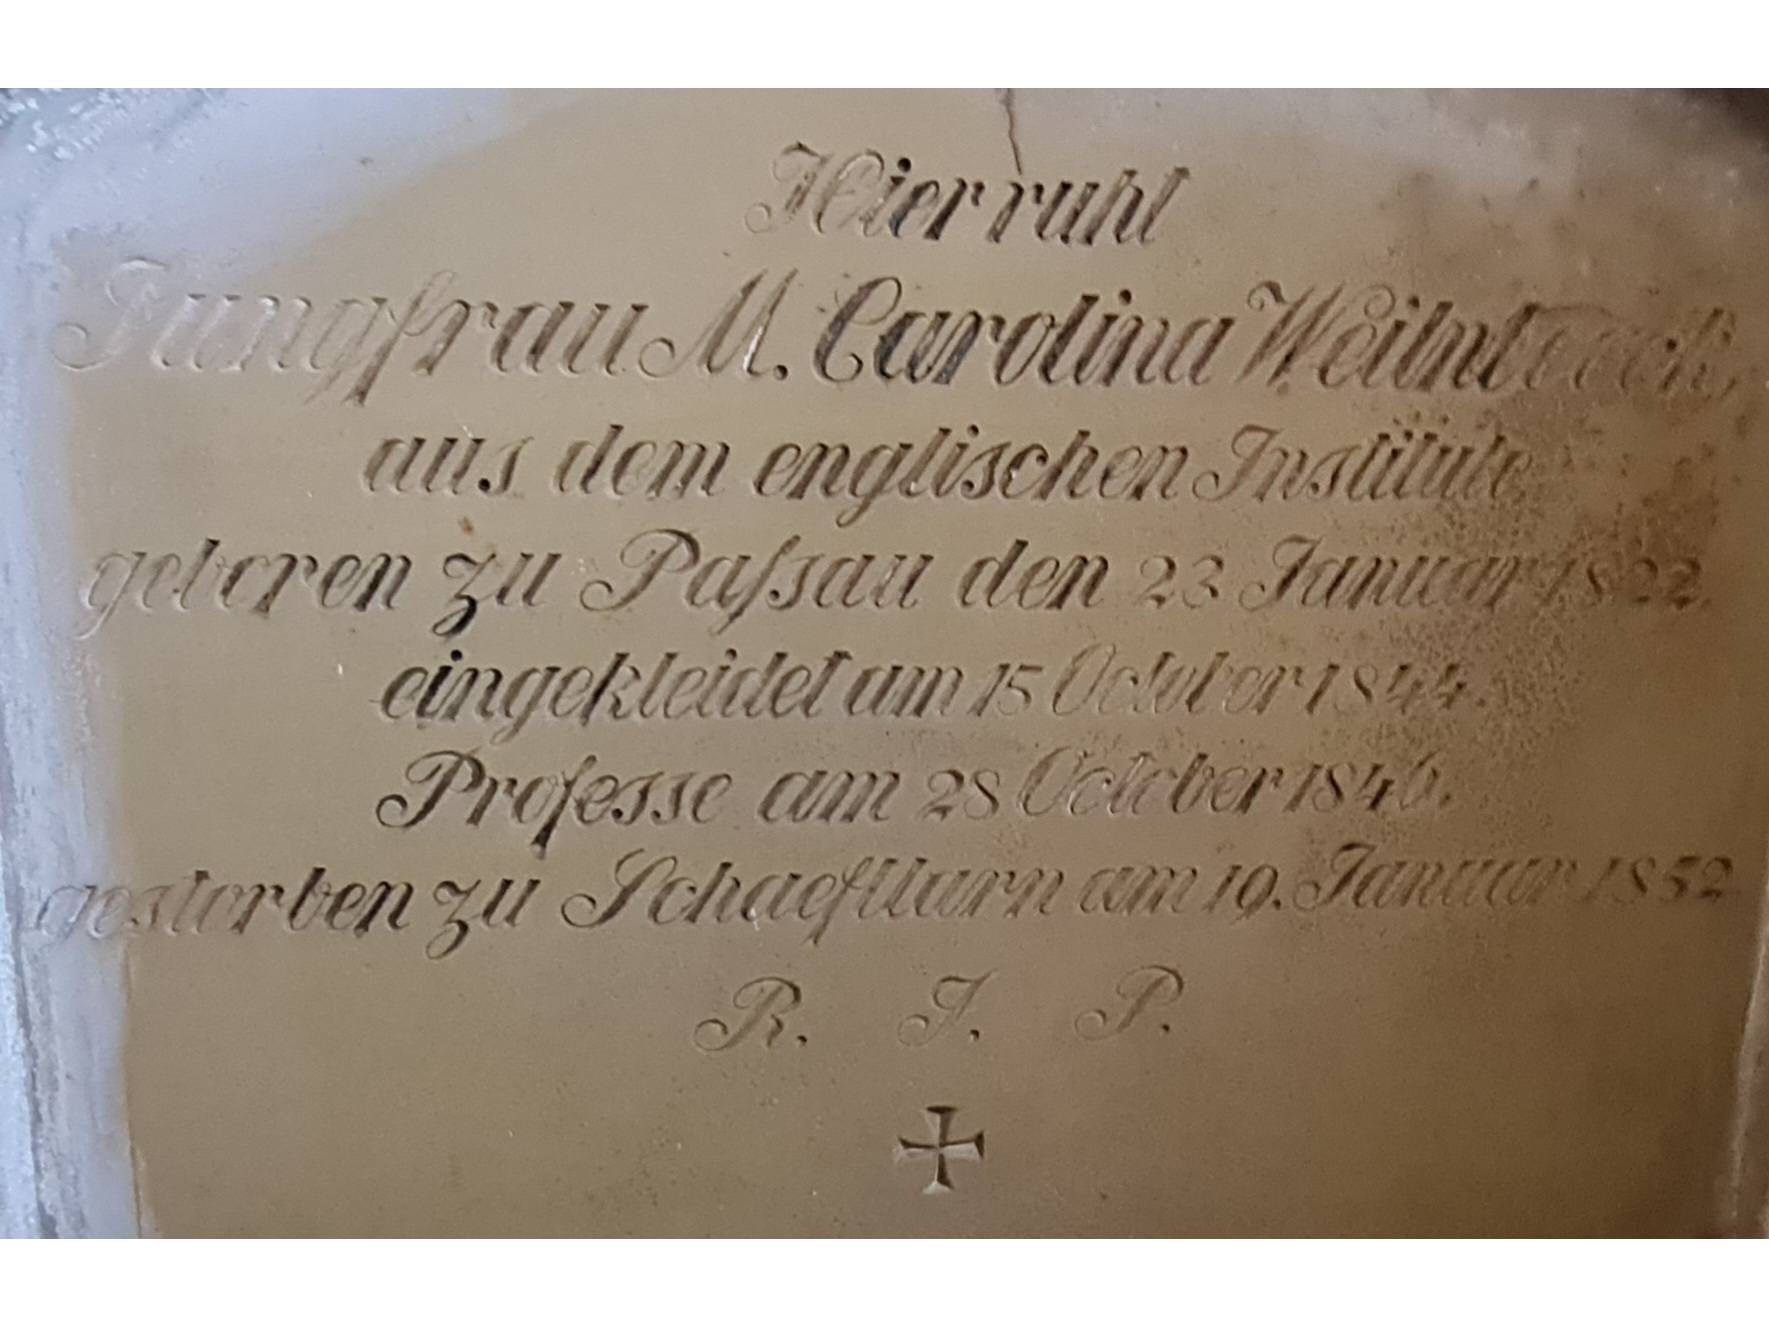 Hier ruht
Jungfrau M. Carolina
aus dem englischen Institute
geboren zu Paſsau den 23 Januar 1822.
eingekleidet am 15 October 1844.
Professe am 28 October 1846.
gestorben zu Schaeftlarn am 19. Januar 1852
R. I. P.